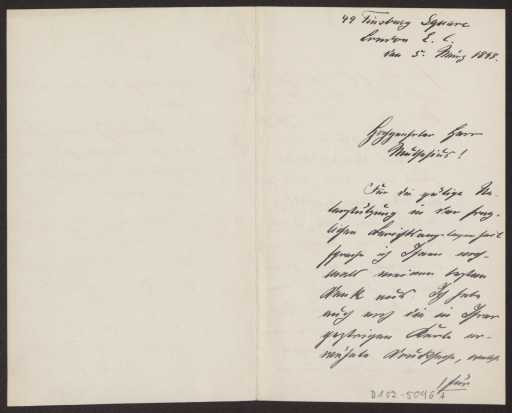 49 Finsbury Square
London E. C.
den 5. März 1898.
Hochgeehrter Herr
Muthesius!
Für die gütige Un-
terstützung in der frag-
lichen Berichtangelegenheit
spreche ich Ihnen noch-
mals meinen besten
Dank aus. Ich habe
auch noch die in Ihrer
gestrigen Karte er-
wähnte Drucksache,
für
D102-5096